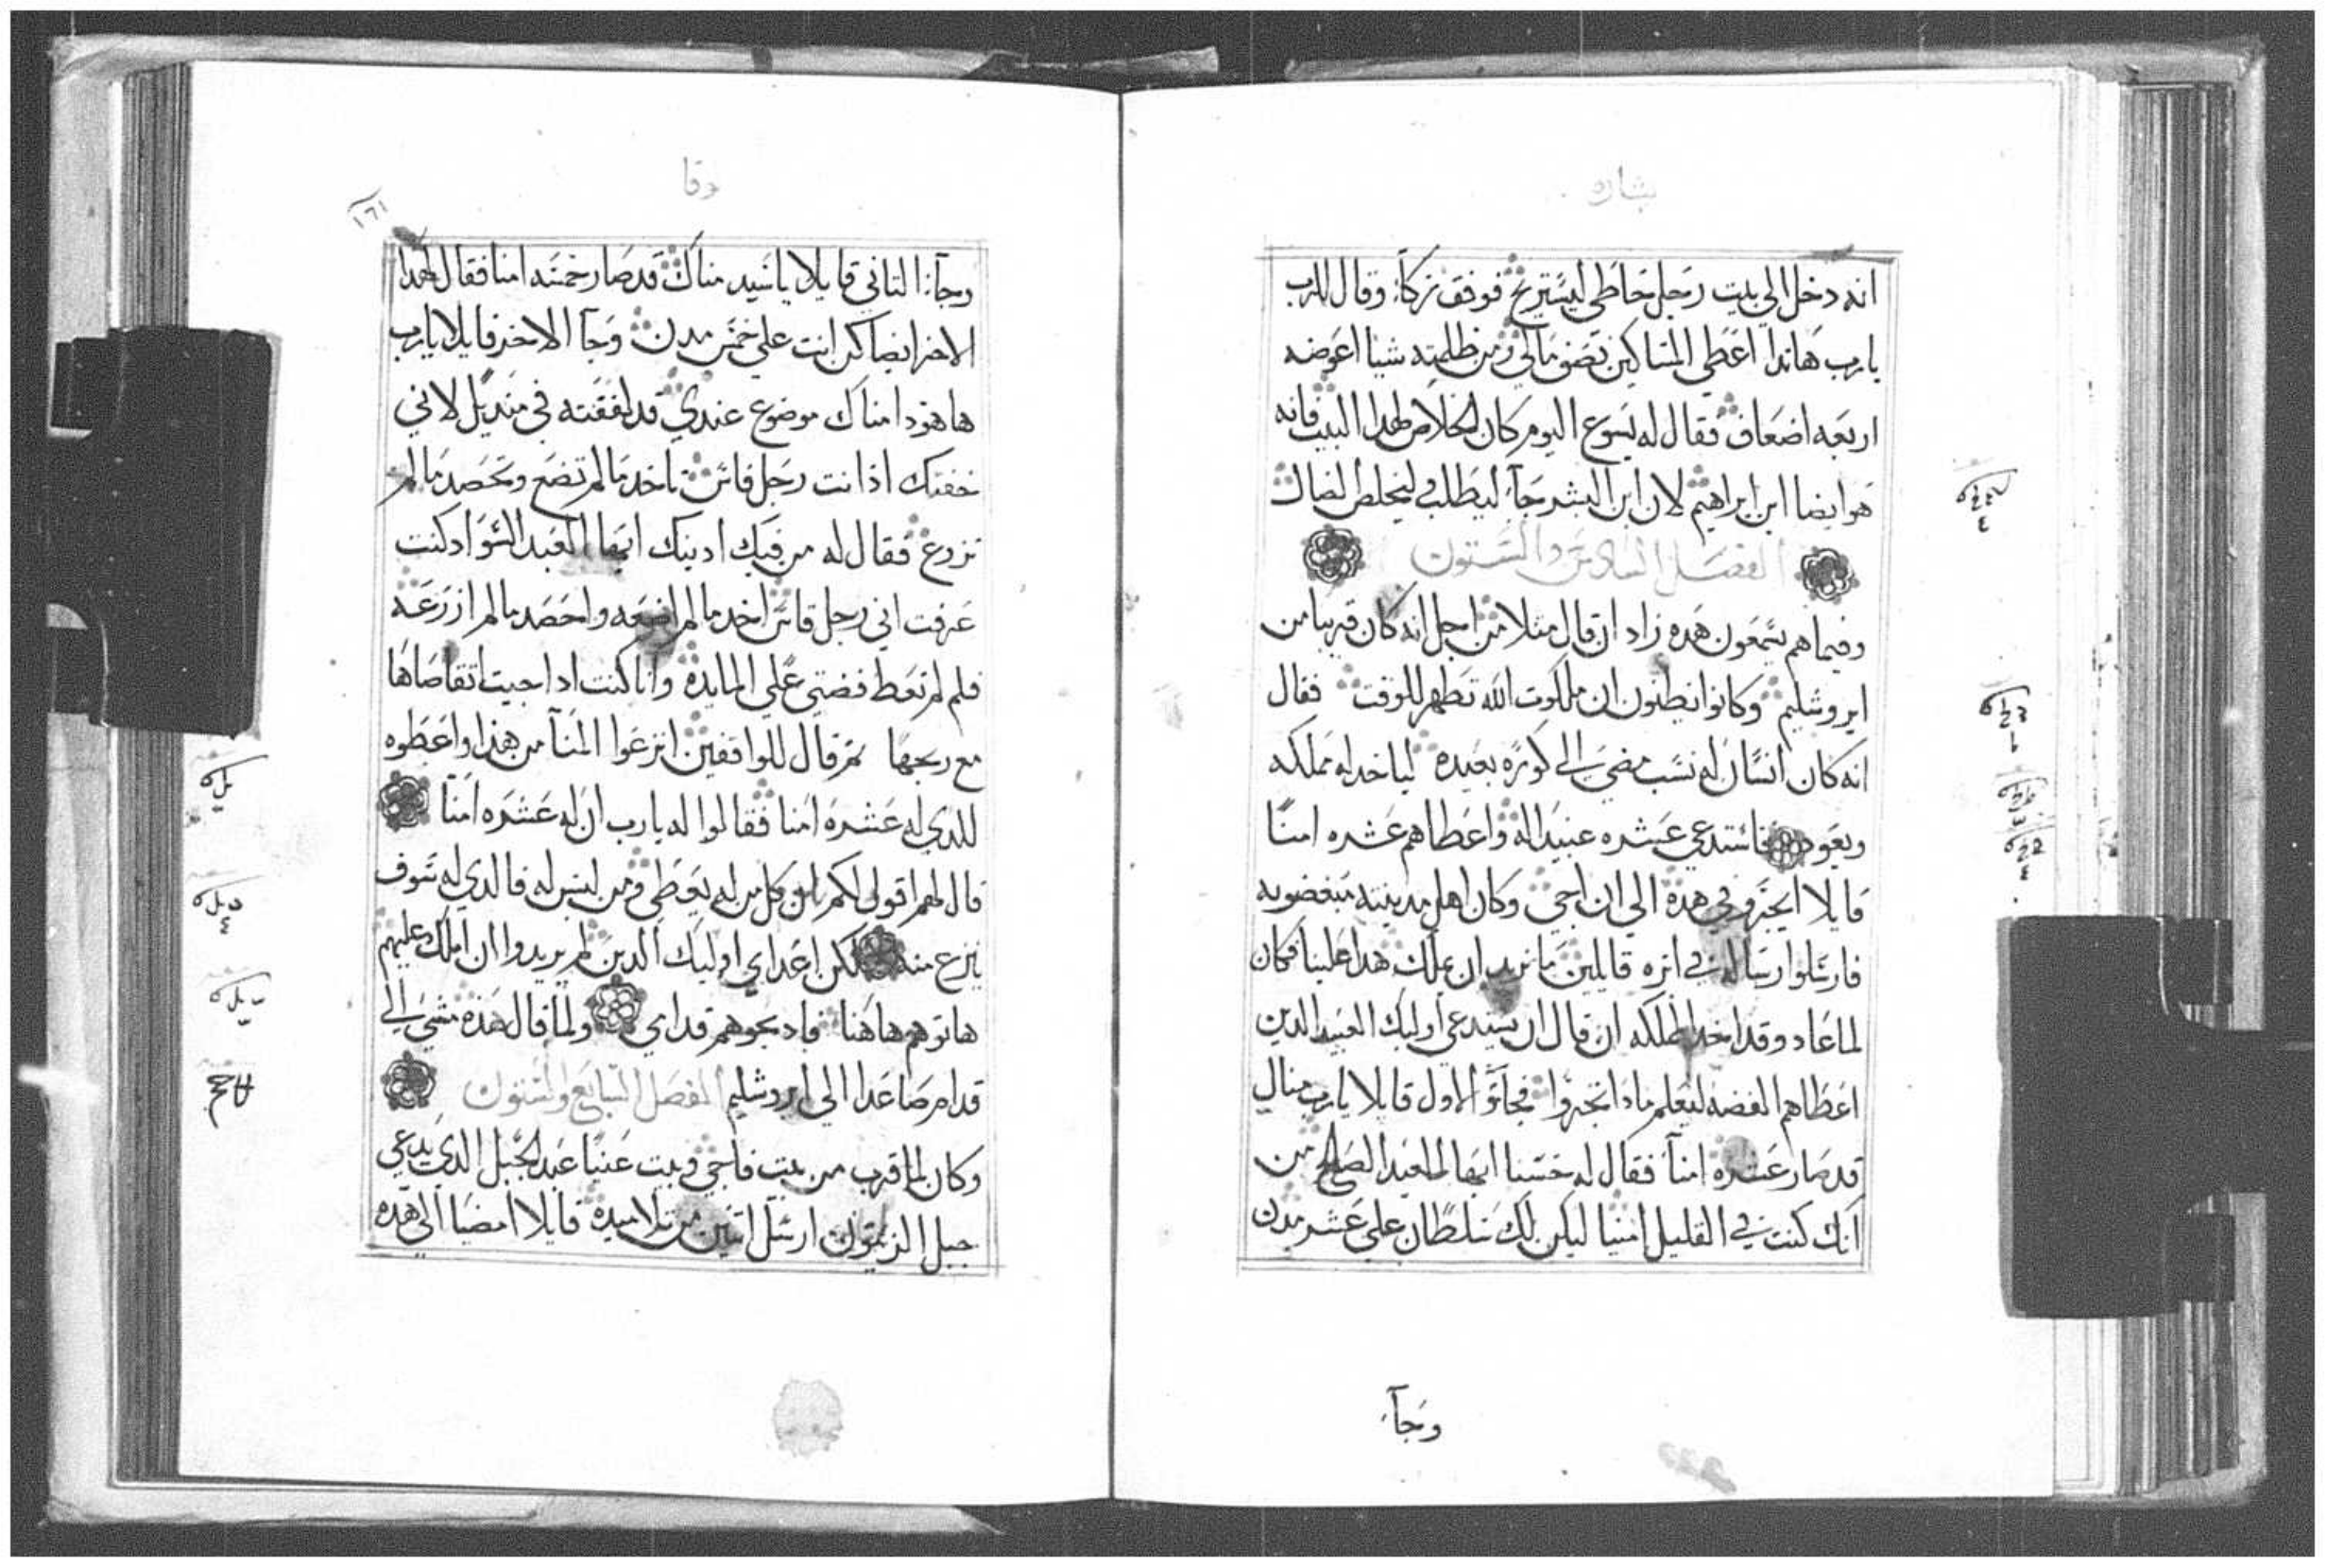 بشاره
انه دخل الي بيت رجل خاطي ليستريح فوقف زكآء وقال للرب
يارب هاندا اعطي المساكين نصف مالي ومن ظلمته شيا اعوضه
اربعه اضعاف فقال له يسوع اليوم كان الخلاص لهدا البيت فانه
هو ايضا ابن ابراهيم لان ابن البشر جآء ليطلب ليخلص الضال
الفصل السادس والستون
وفيماهم يسمعون هده زاد ان قال مثلا من اجل انه كان قريبا من
ايروشليم وكانوا يظنون ان ملكوت الله تظهر للوقت فقال
انه كان انسان له نسب مضي الي كوره بعيده لياخد له مملكه
ويعود فاستدعي عشره عبيد له واعطاهم عشره امنا
قايلا اتجرو في هده الي ان اجي وكان اهل مدينته مبغضوبه
فارسلوا رساله في اتره قايلين ما نريد ان يملك هدا علينا فكان
لما عاد وقد اخد المملكه ان قال ان يستدعي اوليك العبيد الدين
اعطاهم الفضه ليعلم مادا اتجروا فجآء الاول قايلا يارب مناك
قد صار عشره امنآ فقال له حسنا ايها العبد الصالح من
انك كنت في القليل امنيا ليكن لك سلطان علي عشر مدن
وجآء
وقا
١٦١
وجآء التاني قايلا ياسيد مناك قد صار خمسه امنا فقال لهدا
الاخر ايضا كن انت علي خمس مدن وجآ الاخر قايلا يارب
ها هودا مناك موضوع عندي قد لففته في منديل لاني
خفتك اذ انت رجل قاس تاخد ما لم تضع وتحصد ما لم
تزرع فقال له من فيك ادينك ايها العبد السو اد كنت
عرفت اني رجل قاس اخد ما لم اضعه واحصد ما لم ازرعه
فلم لم تعط فضتي علي المايده وانا كنت ادا جيت اتقاضاها
مع ربحها تم قال للواقفين انزعوا المنآ من هذا واعطوه
للدي له عشره امنا فقالوا له يارب ان له عشره امنآ
قال لهم اقول لكم ان كل من له يعطي ومن ليس له فالدي له سوف
ينزع منه لكن اعداي اوليك الدين لم يريدوا ان املك عليهم
هاتوهم هاهنا فادبحوهم قدامي ولما قال هذه مشي الي
قدام صاعدا الي ايروشليم الفصل السابع والستون
وكان لما قرب من بيت فاجي وبيت عنيا عند الجبل الدي يدعي
جبل الزيتون ارسل اتنين من تلاميده قايلا امضيا الي هده